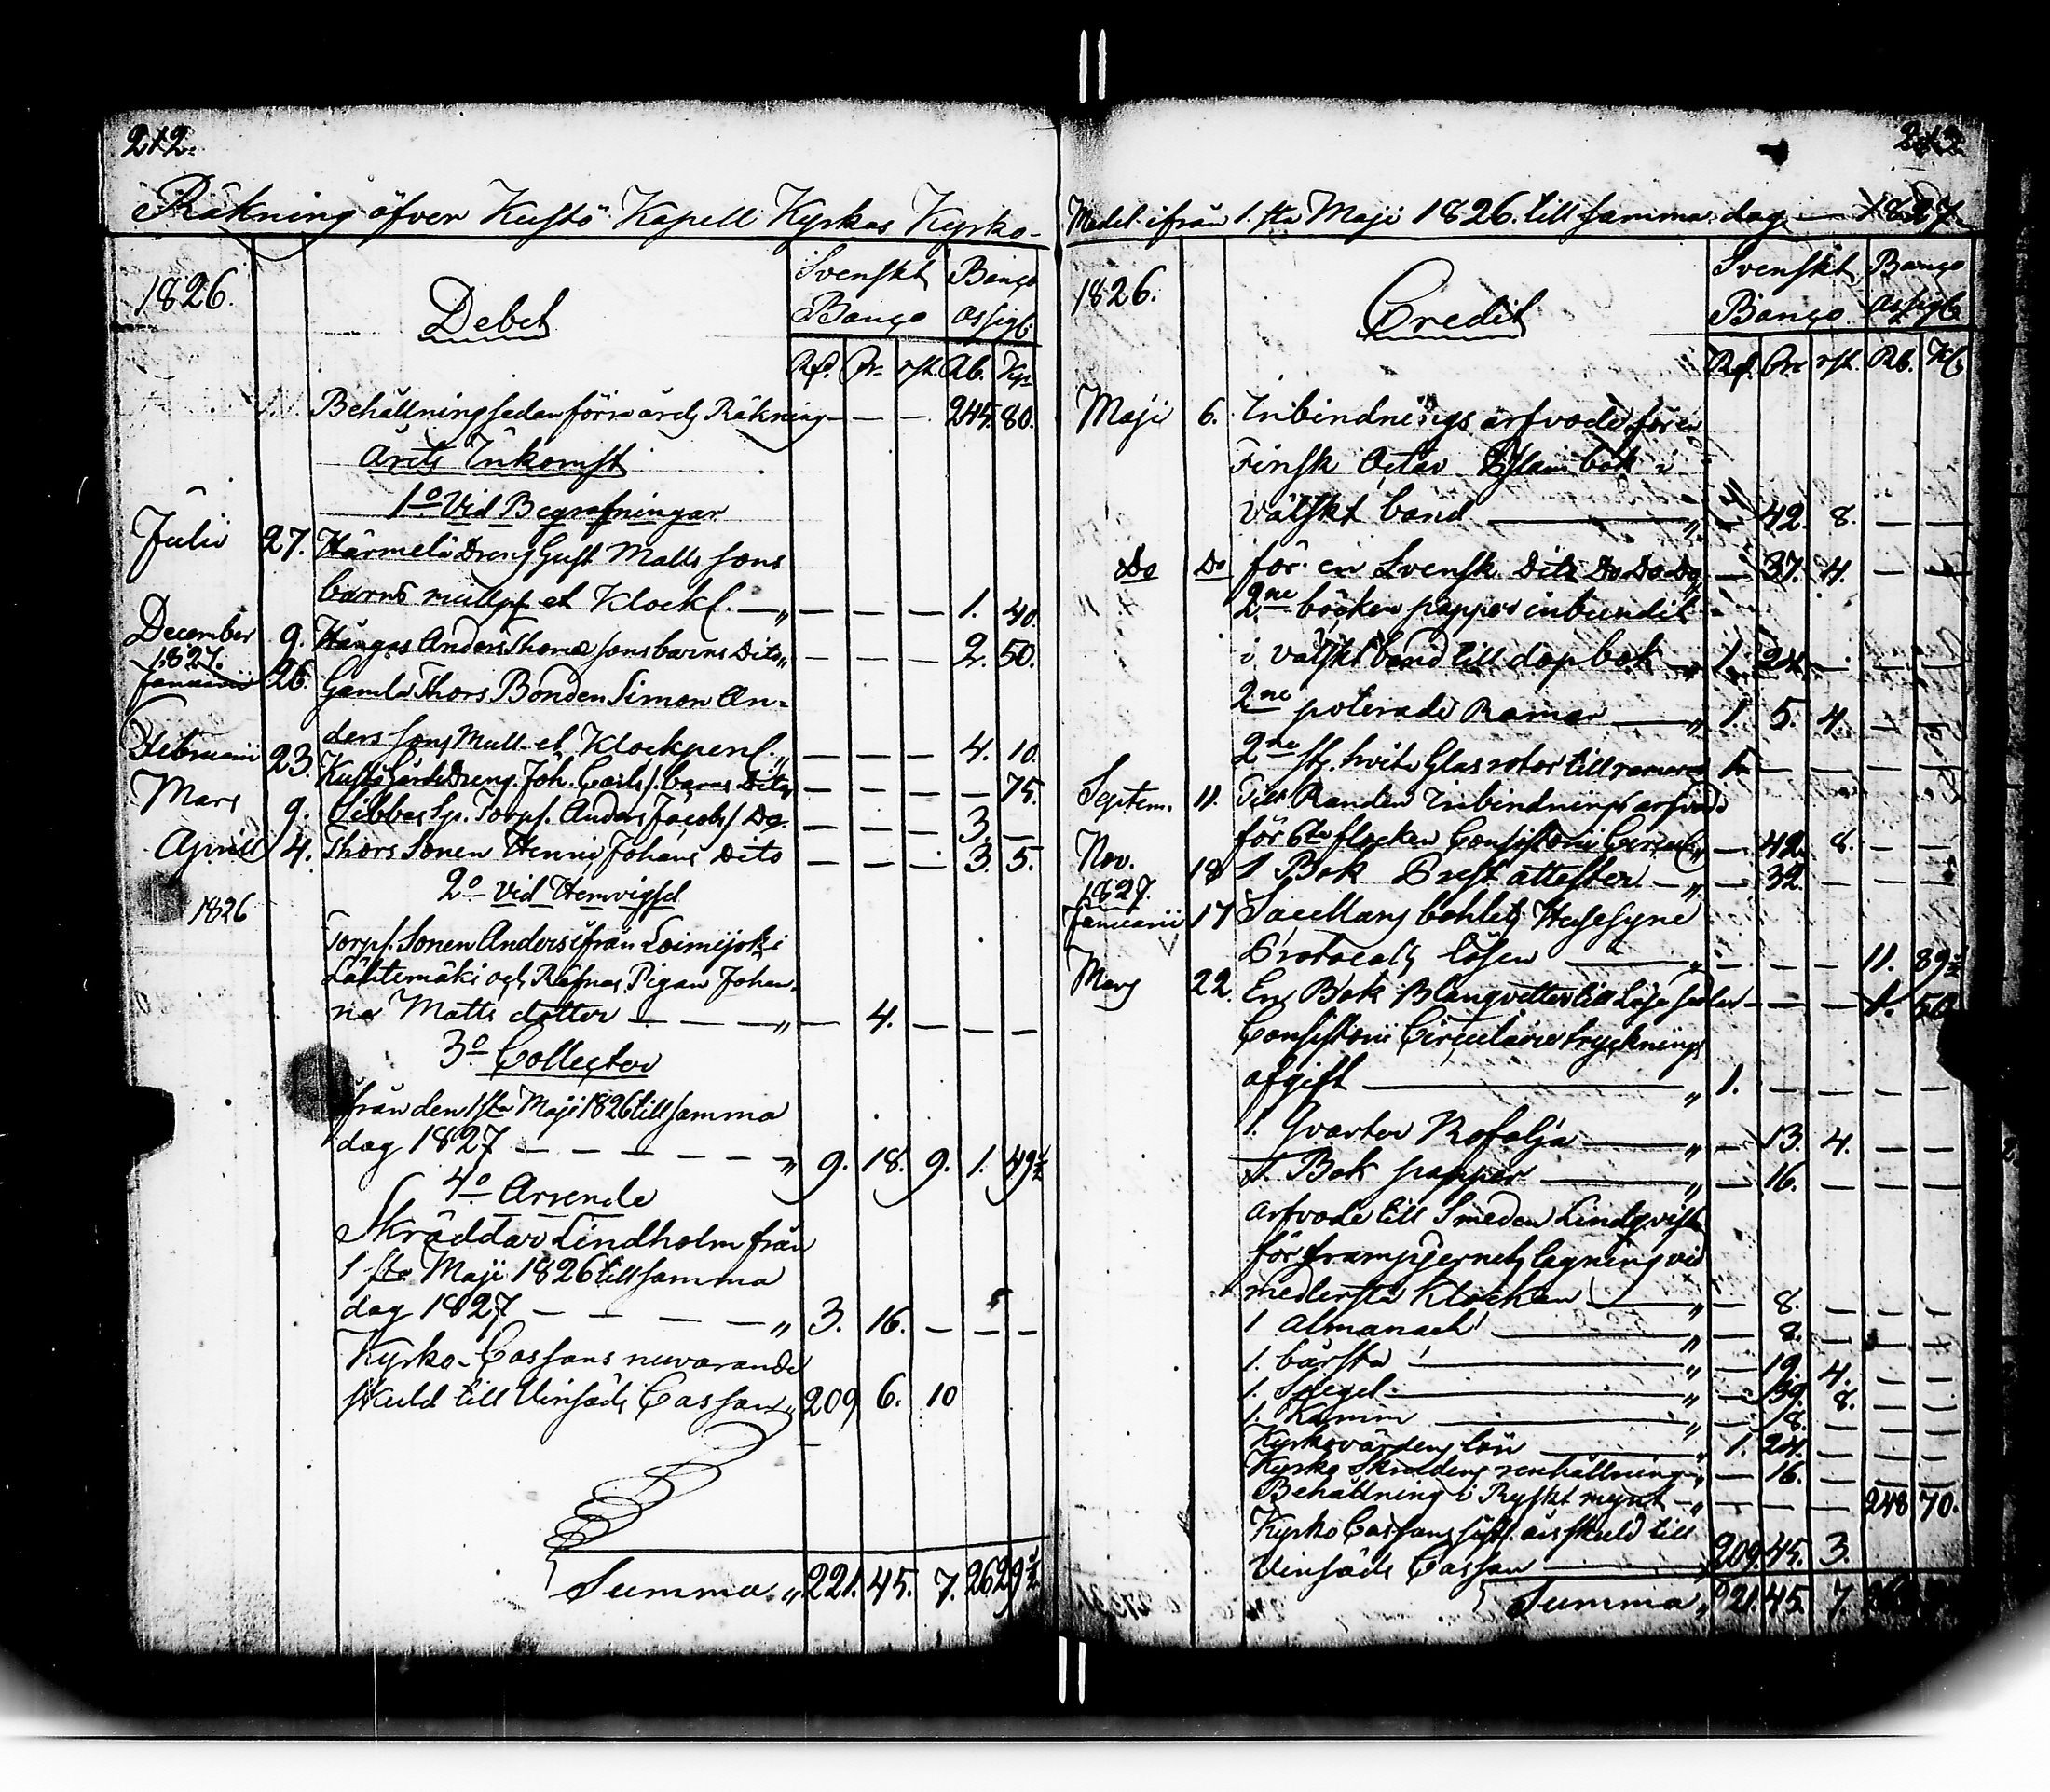 212.
Räkning öfver Kustö Kapell Kyrkas Kyrko-
1826.
Debet
Svenskt Banco
Banco assigl.
Rd. sk. rst. Rb. Kp.
Behållning sedan förra årets Räkning — — — 245. 80.
Årets Inkomst
1o Vid Begrafningar
Julii 27. Härmelä Dreng Gust. Matts sons
barns mullp. et Klockp. — „ — — — 1. 40.
December 9. Hångas Anders Thomæ sons barns Dito „ — — — 2. 50.
1827.
Januarii 26. Gamla Thors Bonden Simon An-
ders sons Mull- et Klockpen. „ — — — 4. 10.
Februarii 23. Kustö Gårds Dreng Joh. Carls s. barns Dito — — — — 75.
Mars 9. Sibbes Sp. Torps. Anders Jacobs s. Do. — — — 3. —
Aprill 4. Thors Sonen Henric Johans Dito — — — 3. 5.
2o Vid Hemvigsel
1826
Torps. Sonen Anders ifrån Loimijoki
Lähtemäki och Räfnas Pigan Johan-
na Matts dotter — — — „ — 4. — — —
3o Collecter
från den 1sta Maji 1826 till samma
dag 1827 — — — — — „ 9. 18. 9. 1. 49½
4o Arrende
Skräddar Lindholm från
1sta Maji 1826 till samma
dag 1827 — — — — „ 3. 16. — — —
Kyrko-Cassans nuvarande
skuld till Vinsäds Cassan „ 209 6. 10
Summa „ 221. 45. 7. 262 29½
212
Medel ifrån 1.sta Maji 1826. till samma dag — 1827.
1826.
Credit
Svenskt Banco
Banco assigl.
Rd. sk. rst. Rb. Kp.
Maji 6. Inbindnings arfvode för en
Finsk Octav Psalmbok i
välskt band — „ — 42. 8. — —
Do Do för en Svensk Dito Do Do Do — 37. 4. — —
2ne böcker papper inbundit
i välskt band till dopbok — „ 1. 24. — — —
2ne polerade Ramar — „ 1. 5. 4. — —
2ne st. hvita Glas rutor till ramarna 1. — — — —
Septem. 11. Till Randen Inbindnings arfvode
för 6te flocken Consistorii Circul. „ — 42. 8. — —
Nov. 18 1 Bok Prest attester — „ — 32. — — —
1827.
Januarii 17 Sacellans bohlets Husesyne
Protocolls lösen — „ — — — 11. 89½
Mars 22. En Bok Blanqvetter till — — — 1. 50
Consistorii Circulairers trycknings
afgift — „ 1. — — — —
1. Qvarter Bofolja — „ — 13. 4. — —
1. Bok papper — „ — 16. — — —
Arfvode till Smeden Lindqvist
för lagning vid
medlersta Klockan — „ — 8. — — —
1 Almanach — „ — 8. — — —
1. bårsta — „ — 19. 4. — —
1. Spegel — „ — 39. 8. — —
1. Kamm — „ — 8. — — —
Kyrkovärdens lön — „ 1. 24. — — —
Kyrko Skrudens renhållning „ — 16. — — —
Behållning i Ryskt mynt — „ — — — 248 70.
Kyrko Cassans sistl. års skuld till
Vinsäds Cassan — 209. 45. 3.
Summa „ 221. 45. 7.